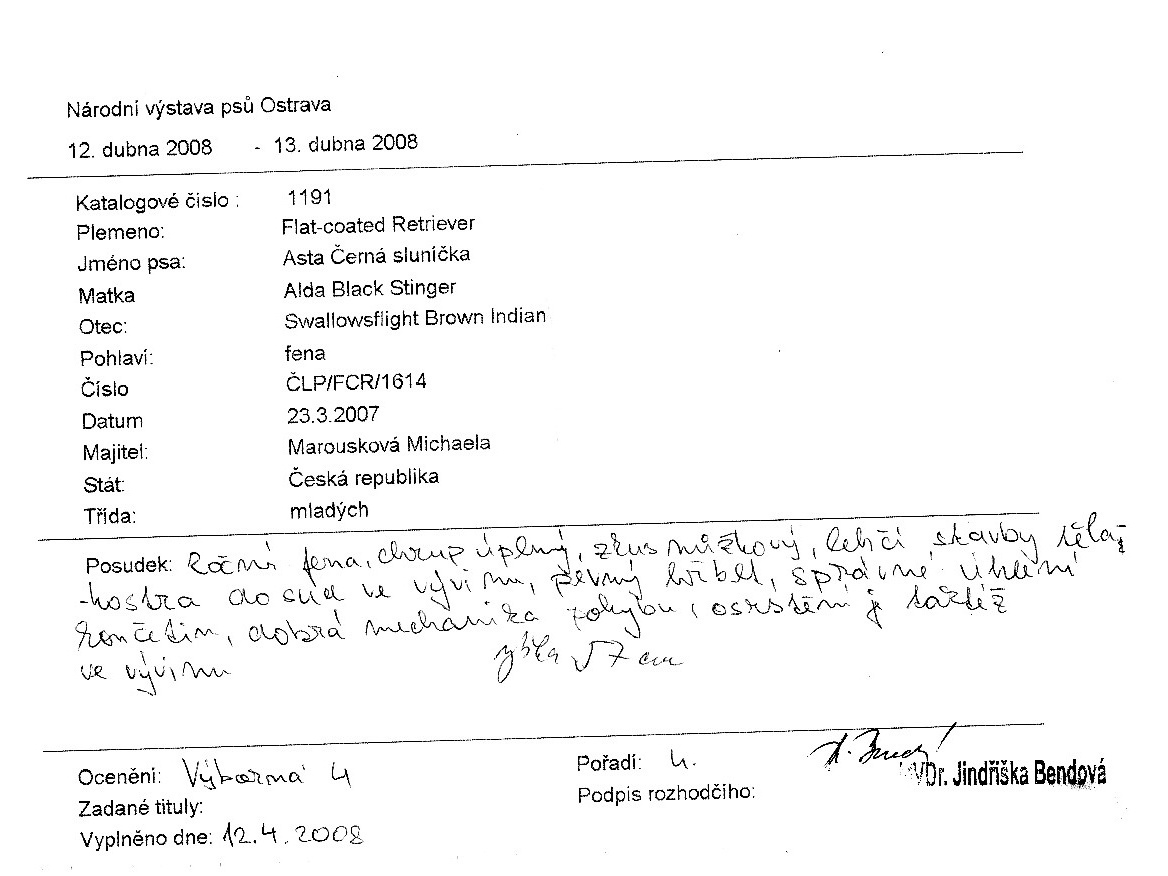 Národní výstava psů Ostrava
12. dubna 2008 - 13. dubna 2008
Katalogové číslo : 1191
Plemeno: Flat-coated Retriever
Jméno psa: Asta Černá slunička
Matka Alda Black Stinger
Otec: Swallowsflight Brown Indian
Pohlaví: fena
Číslo ČLP/FCR/1614
Datum 23.3.2007
Majitel: Marousková Michaela
Stát: Česká republika
Třída: mladých
Posudek: Roční fena, chrup úplný, zkus nůžkový, lehčí stavby těla,
kostra dosud ve vývinu, pevný hřbet, správné úhlení
končetin, dobrá mechanika pohybu, osrstění je taktéž
ve vývinu výška 57 cm
Ocenění: Výborná 4 Pořadí: 4.
Zadané tituly: Podpis rozhodčího: MVDr. Jindřiška Bendová
Vyplněno dne: 12.4.2008